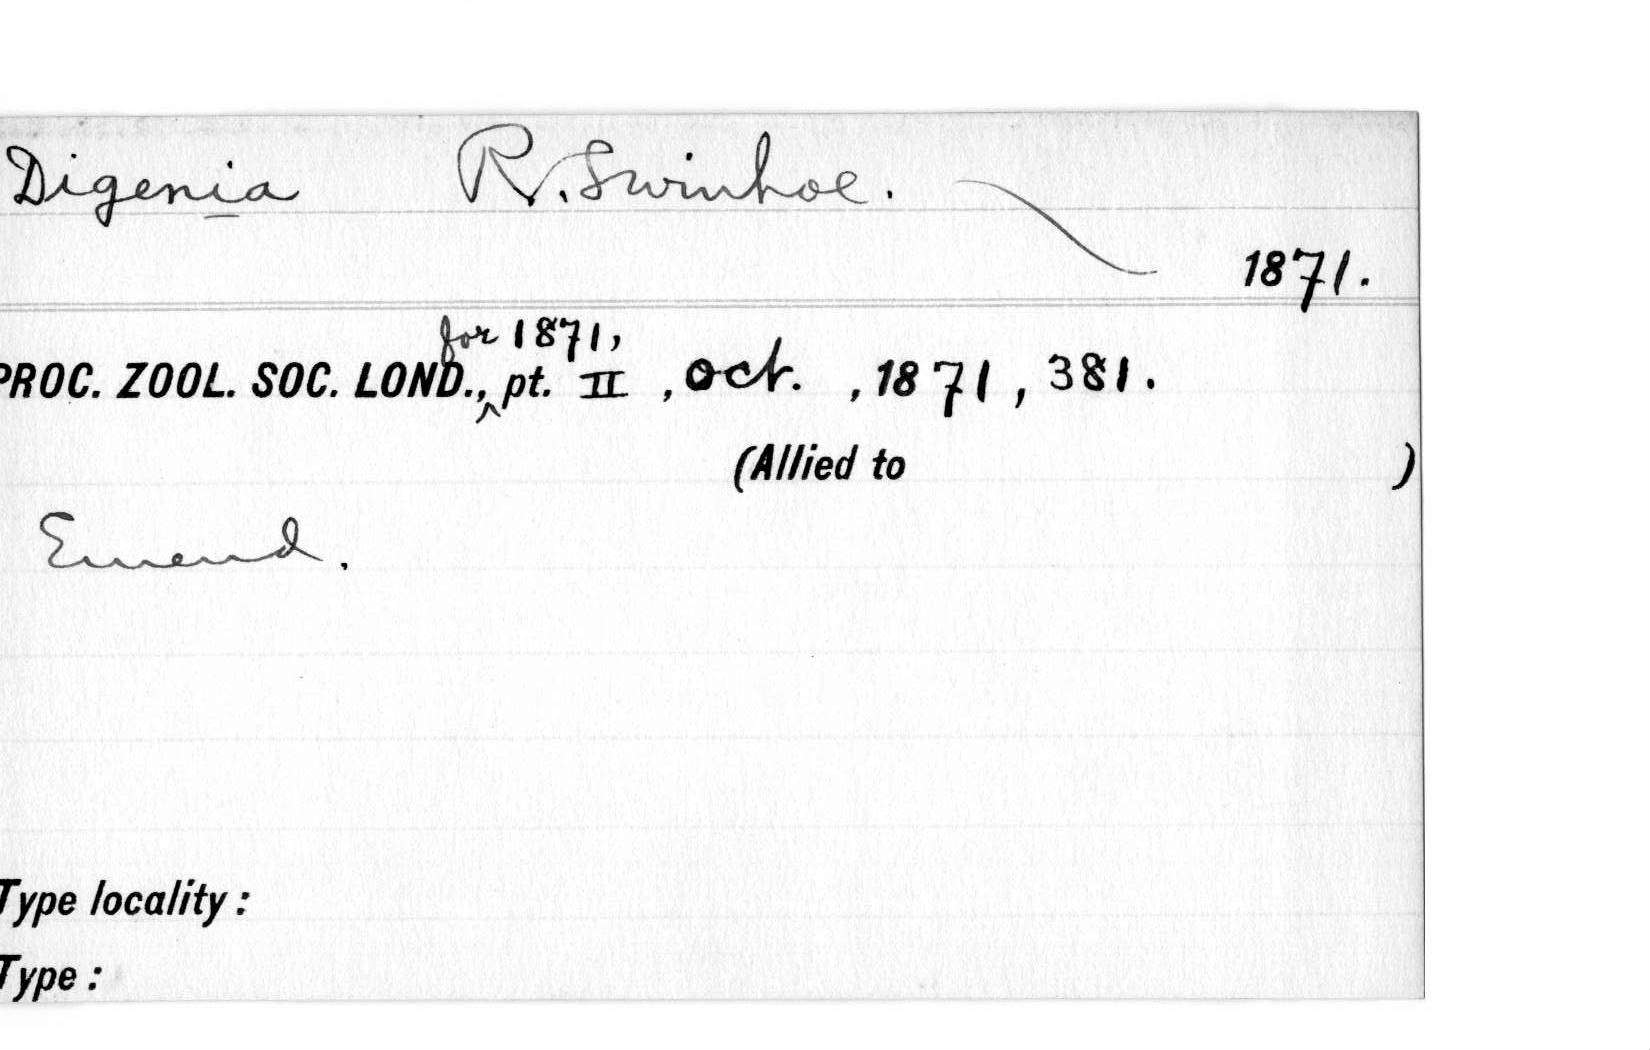 Digenia R. Swinhoe.
1871.
for 1871,
PROC. ZOOL. SOC. LOND., ‸ pt. II , Oct. , 1871 , 381.
(Allied to )
Emend.
Type locality :
Type :